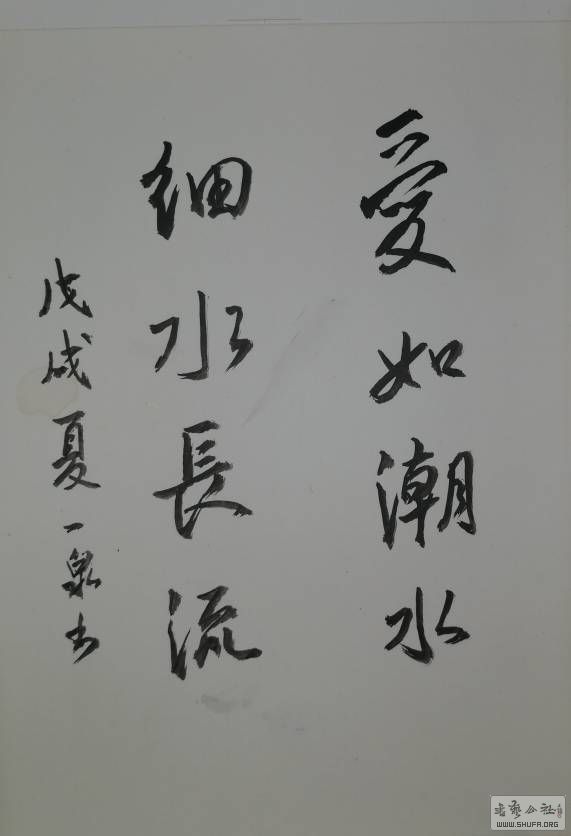 愛如潮水
细水長流
戊戌夏一泉书
书艺公社
WWW.SHUFA.ORG